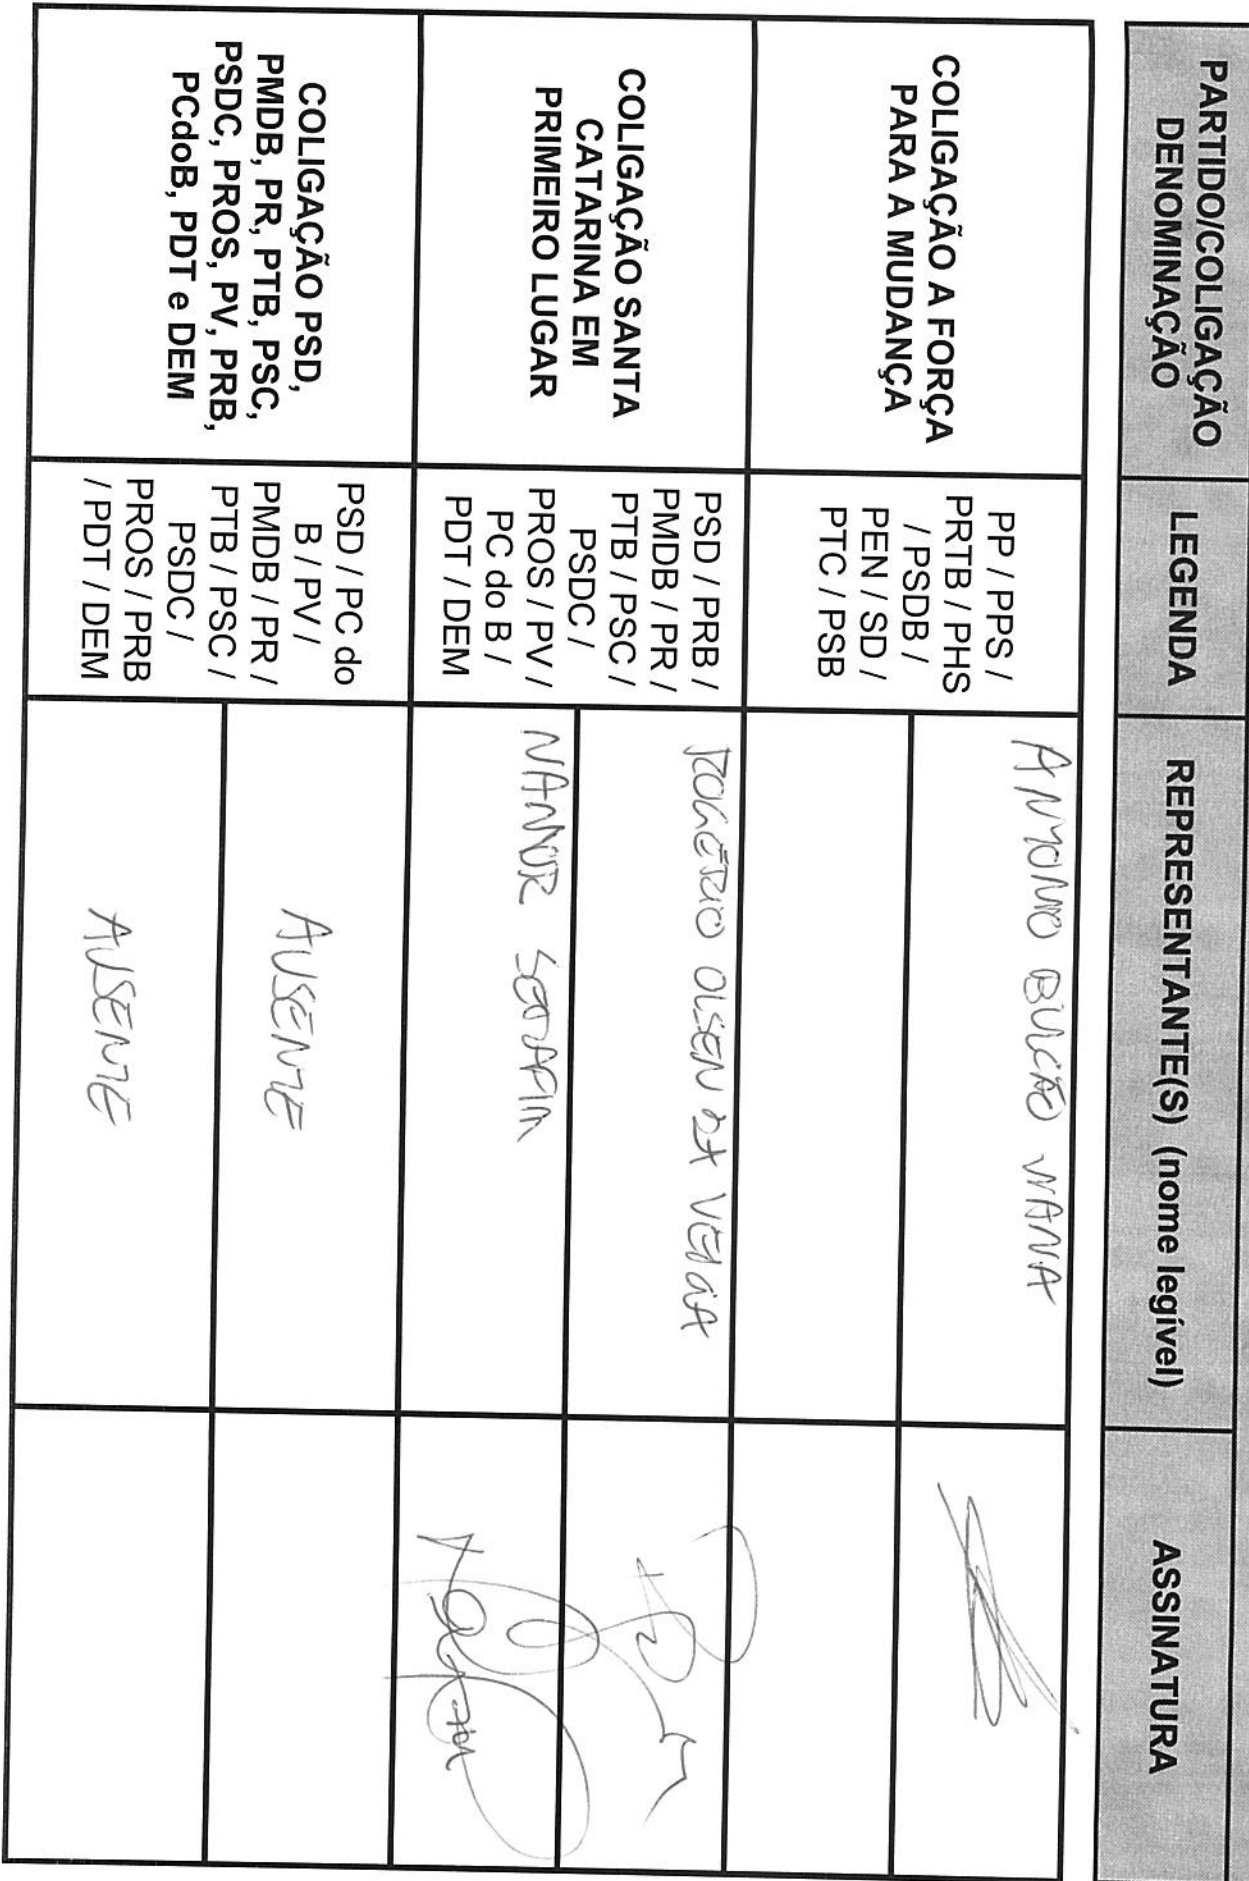 PARTIDO/COLIGAÇÃO
DENOMINAÇÃO
LEGENDA
REPRESENTANTE(S) (nome legível)
ASSINATURA
COLIGAÇÃO A FORÇA
PARA A MUDANÇA
PP / PPS /
PRTB / PHS
/ PSDB /
PEN / SD /
PTC / PSB
ANTONIO BULCÃO VIANA
COLIGAÇÃO SANTA
CATARINA EM
PRIMEIRO LUGAR
PSD / PRB /
PMDB / PR /
PTB / PSC /
PSDC /
PROS / PV /
PC do B /
PDT / DEM
ROGÉRIO OLSEN DA VEIGA
NANDOR SERAFIM
COLIGAÇÃO PSD,
PMDB, PR, PTB, PSC,
PSDC, PROS, PV, PRB,
PCdoB, PDT e DEM
PSD / PC do
B / PV /
PMDB / PR /
PTB / PSC /
PSDC /
PROS / PRB
/ PDT / DEM
AUSENTE
AUSENTE